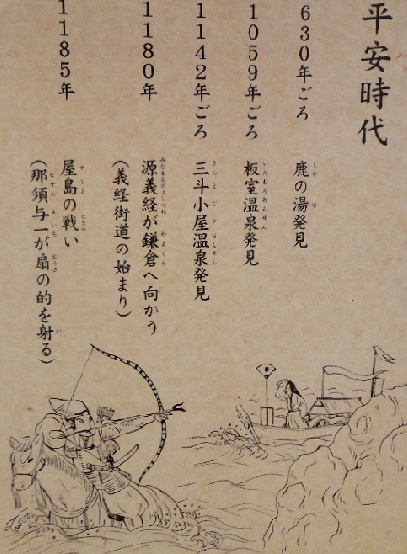 平安時代
630年ごろ 鹿の湯発見
1059年ごろ 板室温泉発見
1142年ごろ 三斗小屋温泉発見
1180年 源義経が鎌倉へ向かう
（義経街道の始まり）
1185年 屋島の戦い
（那須与一が扇の的を射る）